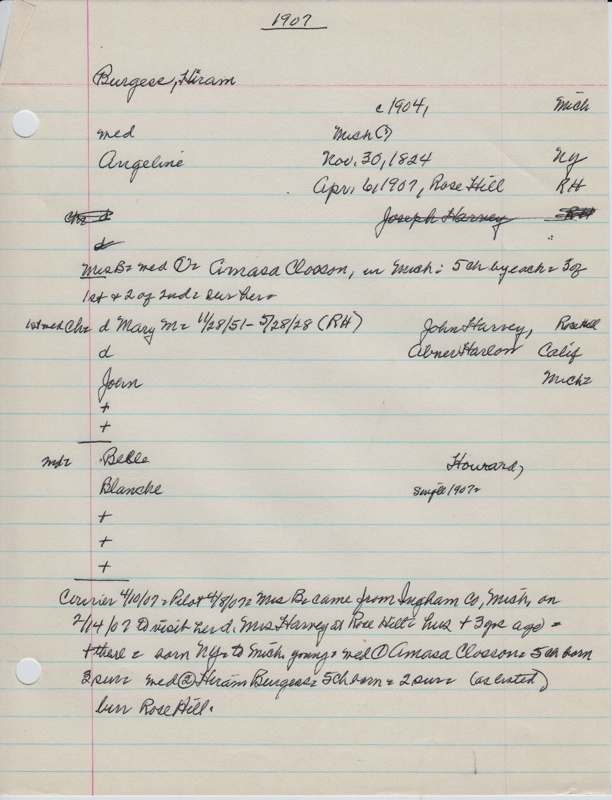 1907
Burgess, Hiram
c 1904, Mich
med Mich (?)
Angeline Nov. 30, 1824 NY
Apr. 6, 1907, Rose Hill RH
Ch= d Joseph Harvey RH
d
Mrs B= med ①= Amasa Closson, in Mich: 5 ch by each= 3 of
1st + 2 of 2nd= surv her=
1st med Ch= d Mary M= 11/28/51-5/28/28 (RH) John Harvey, Rose Hill
d Abner Harlon Calif
John Mich=
+
+
2nd= Belle Howard,
Blanche single 1907=
+
+
+
Courier 4/10/07= Pilot 4/8/07= Mrs B= came from Ingham Co, Mich, on
2/14/07 to visit her d. Mrs Harvey at Rose Hill= husb + 3 yrs ago=
+ there= born NY= to Mich. young= med ① Amasa Closson= 5 ch born
3 surv= med ② Hiram Burgess= 5 ch born= 2 surv= (as listed)
bur Rose Hill.